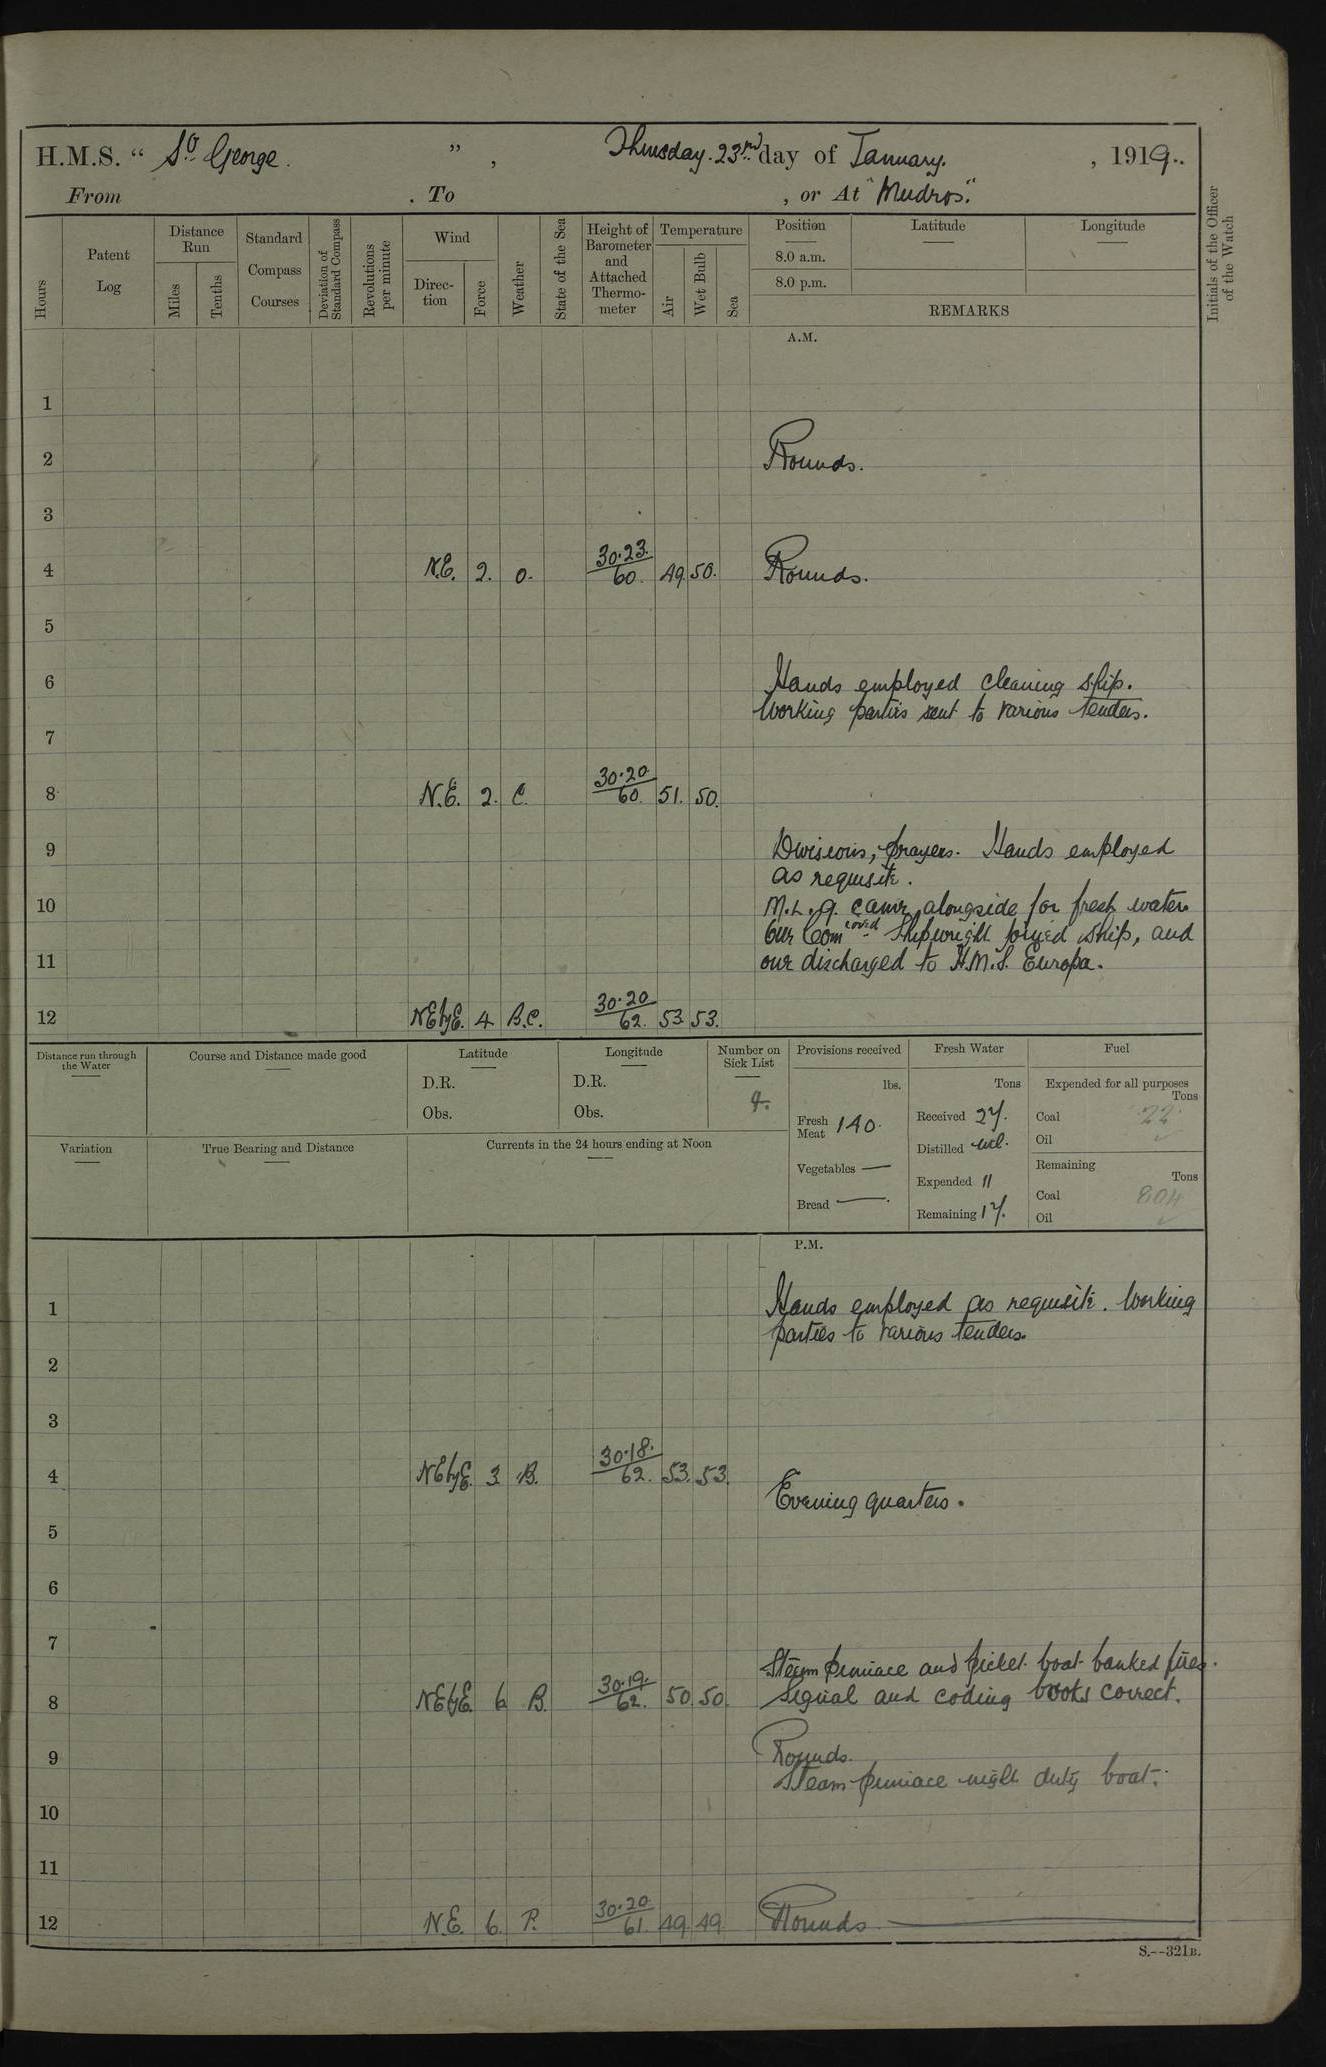 H.M.S. “ St. George. ” , Thursday. 23rd day of January. , 1919.
From . To , or At "Mudros".
Hours
Patent Log
Distance Run
Miles
Tenths
Standard Compass Courses
Deviation of Standard Compass
Revolutions per minute
Wind
Direction
Force
Weather
State of the Sea
Height of Barometer and Attached Thermometer
Temperature
Air
Wet Bulb
Sea
Position
8.0 a.m.
8.0 p.m.
Latitude
Longitude
REMARKS
Initials of the Officer of the Watch
A.M.
1
2 Rounds.
3
4 N.E. 2. o. 30.23. 60. 49 50. Rounds.
5
6 Hands employed cleaning ship.
Working parties sent to various tenders.
7
8 N.E. 2. C. 30.20. 60. 51. 50.
9 Divisions, prayers. Hands employed
as requisite.
10 M.L. 9. came alongside for fresh water.
Our Comd Shipwright joined ship, and
11 our discharged to H.M.S. Europa.
12 NEbyE. 4 B.C. 30.20 62. 53 53.
Distance run through the Water
Course and Distance made good
Latitude
D.R.
Obs.
Longitude
D.R.
Obs.
Number on Sick List
9.
Provisions received
lbs.
Fresh Meat 140.
Vegetables —
Bread —
Fresh Water
Tons
Received 27.
Distilled nil.
Expended 11
Remaining 17.
Fuel
Expended for all purposes
Tons
Coal 22
Oil
Remaining
Tons
Coal 804
Oil
Variation
True Bearing and Distance
Currents in the 24 hours ending at Noon
P.M.
1 Hands employed as requisite. Working
parties to various tenders.
2
3
4 NEbyE. 3 B. 30.18. 62. 53. 53.
Evening quarters.
5
6
7
Steam pinnace and picket boat banked fires.
8 NEbyE. 6 B. 30.19. 62. 50. 50. Signal and coding books correct.
9 Rounds.
Steam pinnace night duty boat.
10
11
12 N.E. 6. P. 30.20. 61. 49. 49. Rounds
S.--321B.